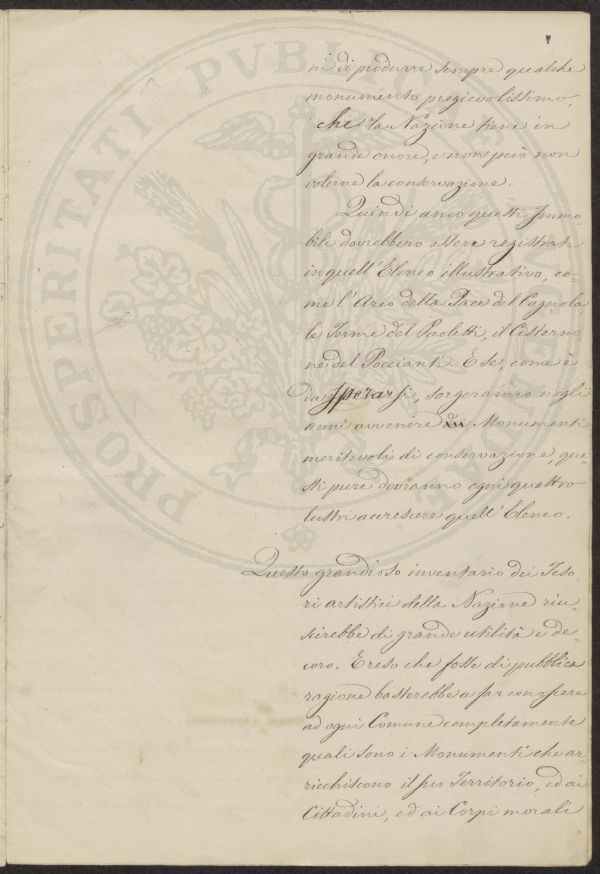 ni di produrre sempre qualche
monumento pregievolissimo,
che la Nazione tiene in
grande onore, e non può non
volerne la conservazione.
Quindi anco questi Immo-
bili dovrebbero essere registrati
in quell'Elenco illustrativo, co-
me l'Arco della Pace del Cagnola,
le Terme del Paoletti, il Cisterno-
ne del Poccianti. E se, come è
da sperarsi, sorgeranno negli
anni avvenire Monumenti
meritevoli di conservazione, que-
sti pure dovranno ogni quattro
lustri accrescere quell'Elenco.
Questo grandioso inventario dei Teso-
ri artistici della Nazione riu-
scirebbe di grande utilità e de-
coro. E reso che fosse di pubblica
ragione basterebbe a far conoscere
ad ogni Comune completamente
quali sono i Monumenti che ar-
ricchiscono il suo Territorio, ed ai
Cittadini, ed ai Corpi morali
PROSPERITATI PVBLICAE